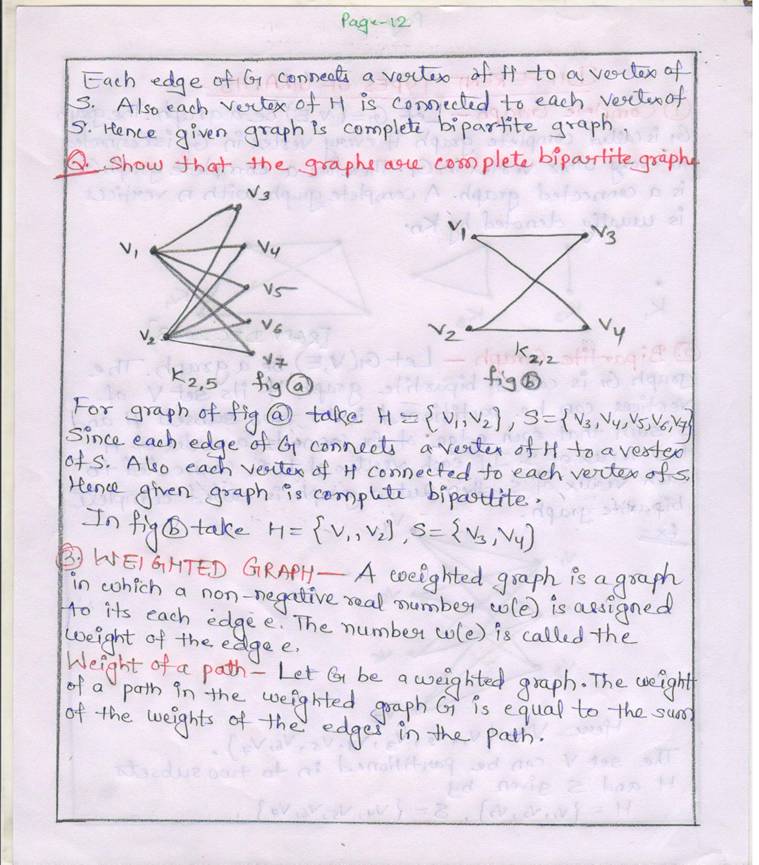 Page-12
Each edge of G connects a vertex of H to a vertex of
S. Also each vertex of H is connected to each vertex of
S. Hence given graph is complete bipartite graph.
Q. Show that the graphs are complete bipartite graphs
V3
V1
V4
V5
V2
V6
V7
K2,5 fig (a)
V1
V3
V2
V4
K2,2
fig (b)
For graph of fig (a) take H = {V1, V2}, S = {V3, V4, V5, V6, V7}
Since each edge of G connects a vertex of H to a vertex
of S. Also each vertex of H connected to each vertex of S.
Hence given graph is complete bipartite.
In fig (b) take H = {V1, V2}, S = {V3, V4}
(3.) WEIGHTED GRAPH — A weighted graph is a graph
in which a non-negative real number w(e) is assigned
to its each edge e. The number w(e) is called the
weight of the edge e.
Weight of a path – Let G be a weighted graph. The weight
of a path in the weighted graph G is equal to the sum
of the weights of the edges in the path.